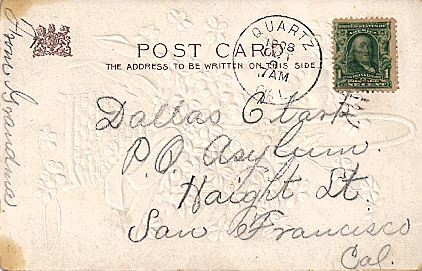 From Grandma
POST CARD
THE ADDRESS TO BE WRITTEN ON THIS SIDE
QUARTZ
1908
7AM
CAL.
1 1
ONE CENT
Dallas Clark
P.O. Asylum.
Haight St.
San Francisco
Cal.